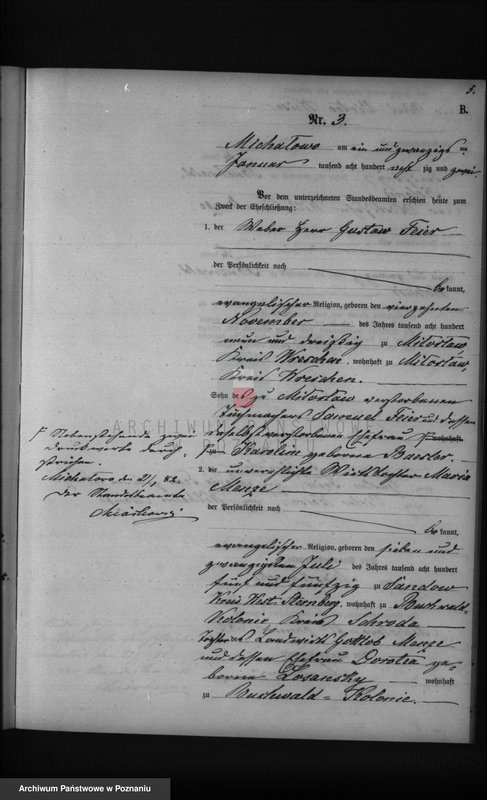 5.
B.
Nr. 3.
Michalowo am ein und zwanzigs ten
Januar tausend acht hundert acht zig und zwei
Vor dem unterzeichneten Standesbeamten erschien heute zum
Zweck der Eheschließung:
1. der Weber Herr Gustaw Feier
der Persönlichkeit nach
be kannt,
evangelischer Religion, geboren den vierzehnten
November des Jahres tausend acht hundert
neun und dreißig zu Miloslaw
Kreis Wreschen, wohnhaft zu Miloslaw,
Kreis Wreschen.
Sohn des zu Miloslaw verstorbenen
Tuchmachers Samuel Feier und dessen
daselbst verstorbene Ehefrau wohnhaft
zu Karoline geborene Baesler.
2. die unverehelichte Wirthstochter Maria
Menze
der Persönlichkeit nach
be kannt,
evangelischer Religion, geboren den sieben und
zwanzigsten Juli des Jahres tausend acht hundert
fünf und fünfzig zu Sandow
Kreis West-Sternberg, wohnhaft zu Buchwald-
Kolonie Kreis Schroda
Tochter des Landwirths Gottlob Menze
und dessen Ehefrau Dorotea ge-
borene Losansky wohnhaft
zu Buchwald-Kolonie.
Nebenstehende zwei
Druckworte durch-
strichen.
Michalowo den 21/1 82.
Der Standesbeamte
ARCHIWUM PAŃSTWOWE
Archiwum Państwowe w Poznaniu